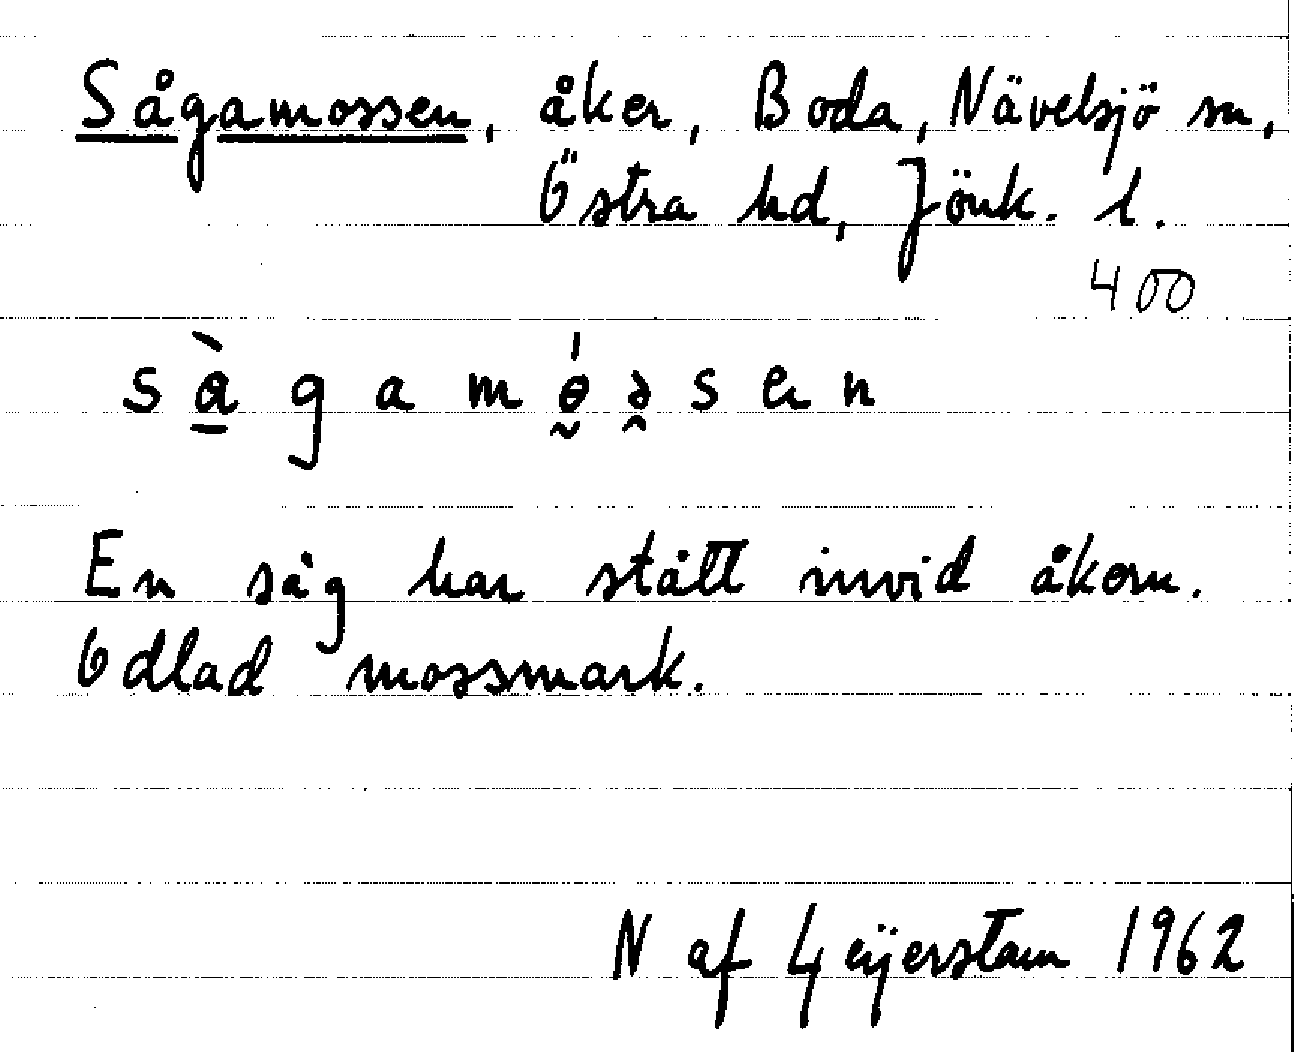 Sågamossen, åker, Boda, Nävelsjö sn,
Östra hd, Jönk. l.
400
En såg har stått invid åkern.
Odlad mossmark.
N af Geijerstam 1962